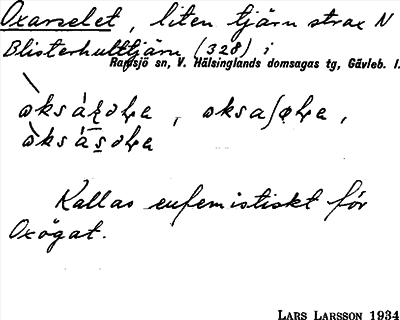 Oxarselet, liten tjärn strax N
Blisterhulttjärn (328) i
Ramsjö sn, V. Hälsinglands domsagas tg, Gävleb. l.
Kallas eufemistiskt för
Oxögat.
LARS LARSSON 1934